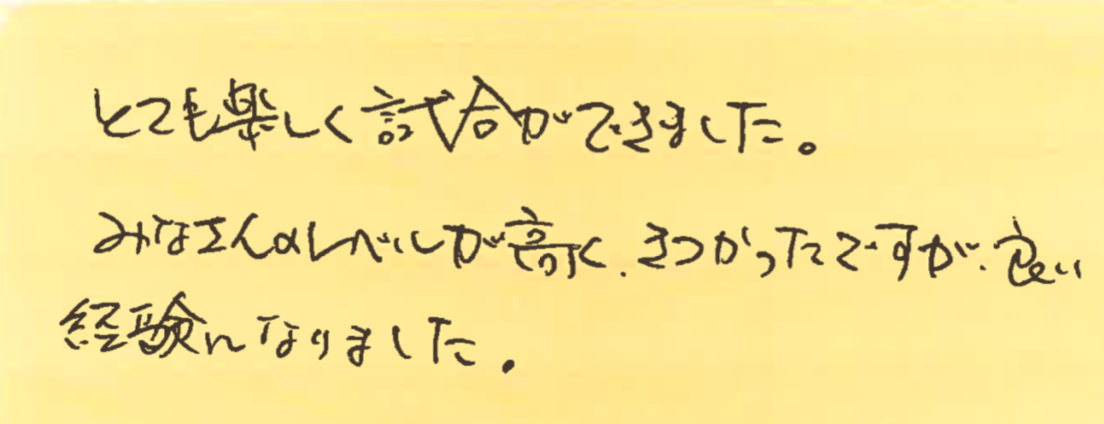 とても楽しく試合ができました。
みなさんのレベルが高く、きつかったですが、良い
経験になりました。